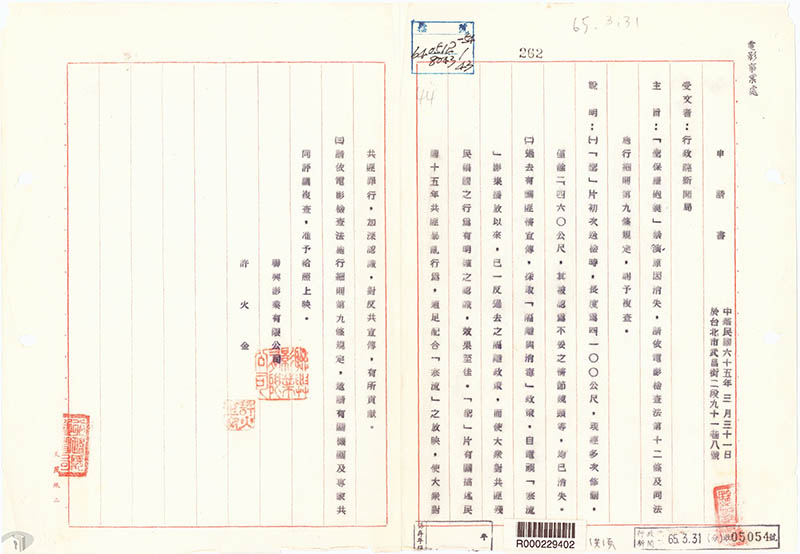 65.3.31
262
44
電影事業處
申請書
中華民國六十五年三月三十一日
於台北市武昌街二段九十一巷八號
受文者：行政院新聞局
主旨：「
禁演原因消失，請依電影檢查法第十二條及同法
施行細則第九條規定，請予複查。
說明：㈠「
」片初次送檢時，長度為四一〇〇公尺，現經多次修剪，
僅餘二四六〇公尺，其被認為不妥之情節鏡頭等，均已消失。
㈡過去有關匪情宣傳，採取「隔離與消毒」政策，自電視「寒流
」影集播放以來，已一反過去之隔離政策，而使大眾對共匪殘
民禍國之行為有明確之認識，效果至佳。「
」片有關描述民
國十五年共匪暴亂行為，適足配合「寒流」之放映，使大眾對
共匪罪行，加深認識，對反共宣傳，有所貢獻。
㈢請依電影檢查法施行細則第九條規定，邀請有關機關及專家共
同評議複查，准予給照上映。
聯興影業有限公司
許火金
R000229402
65.3.31
05054號